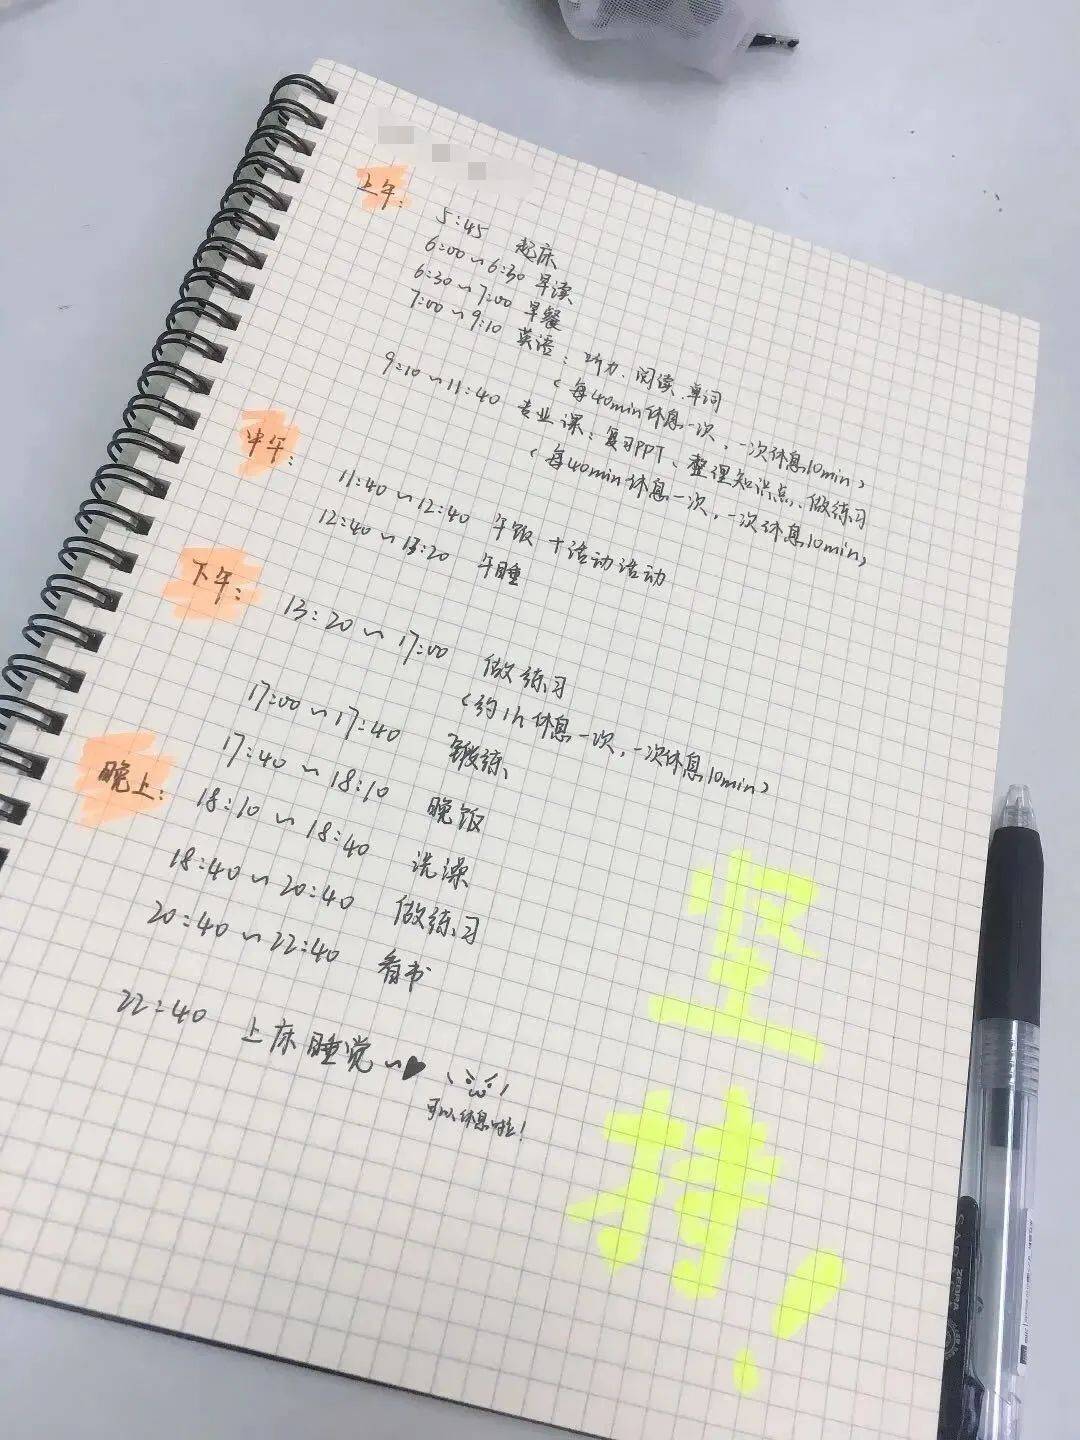 上午:
5:45 起床
6:00~6:30 早读
6:30~7:00 早餐
7:00~9:10 英语:听力、阅读、单词
(每40min休息一次,一次休息10min)
9:10~11:40 专业课:复习PPT、整理知识点、做练习
(每40min休息一次,一次休息10min)
中午:
11:40~12:40 午饭+活动活动
12:40~13:20 午睡
下午:
13:20~17:00 做练习
(约1h休息一次,一次休息10min)
17:00~17:40 锻练
17:40~18:10 晚饭
晚上:
18:10~18:40 洗澡
18:40~20:40 做练习
20:40~22:40 看书
22:40 上床睡觉~♥
可以休息啦!
坚
持!
ZEBRA